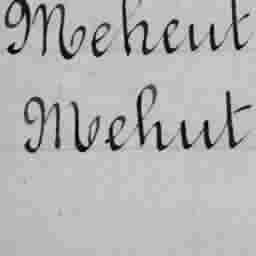 Meheut
Mehut